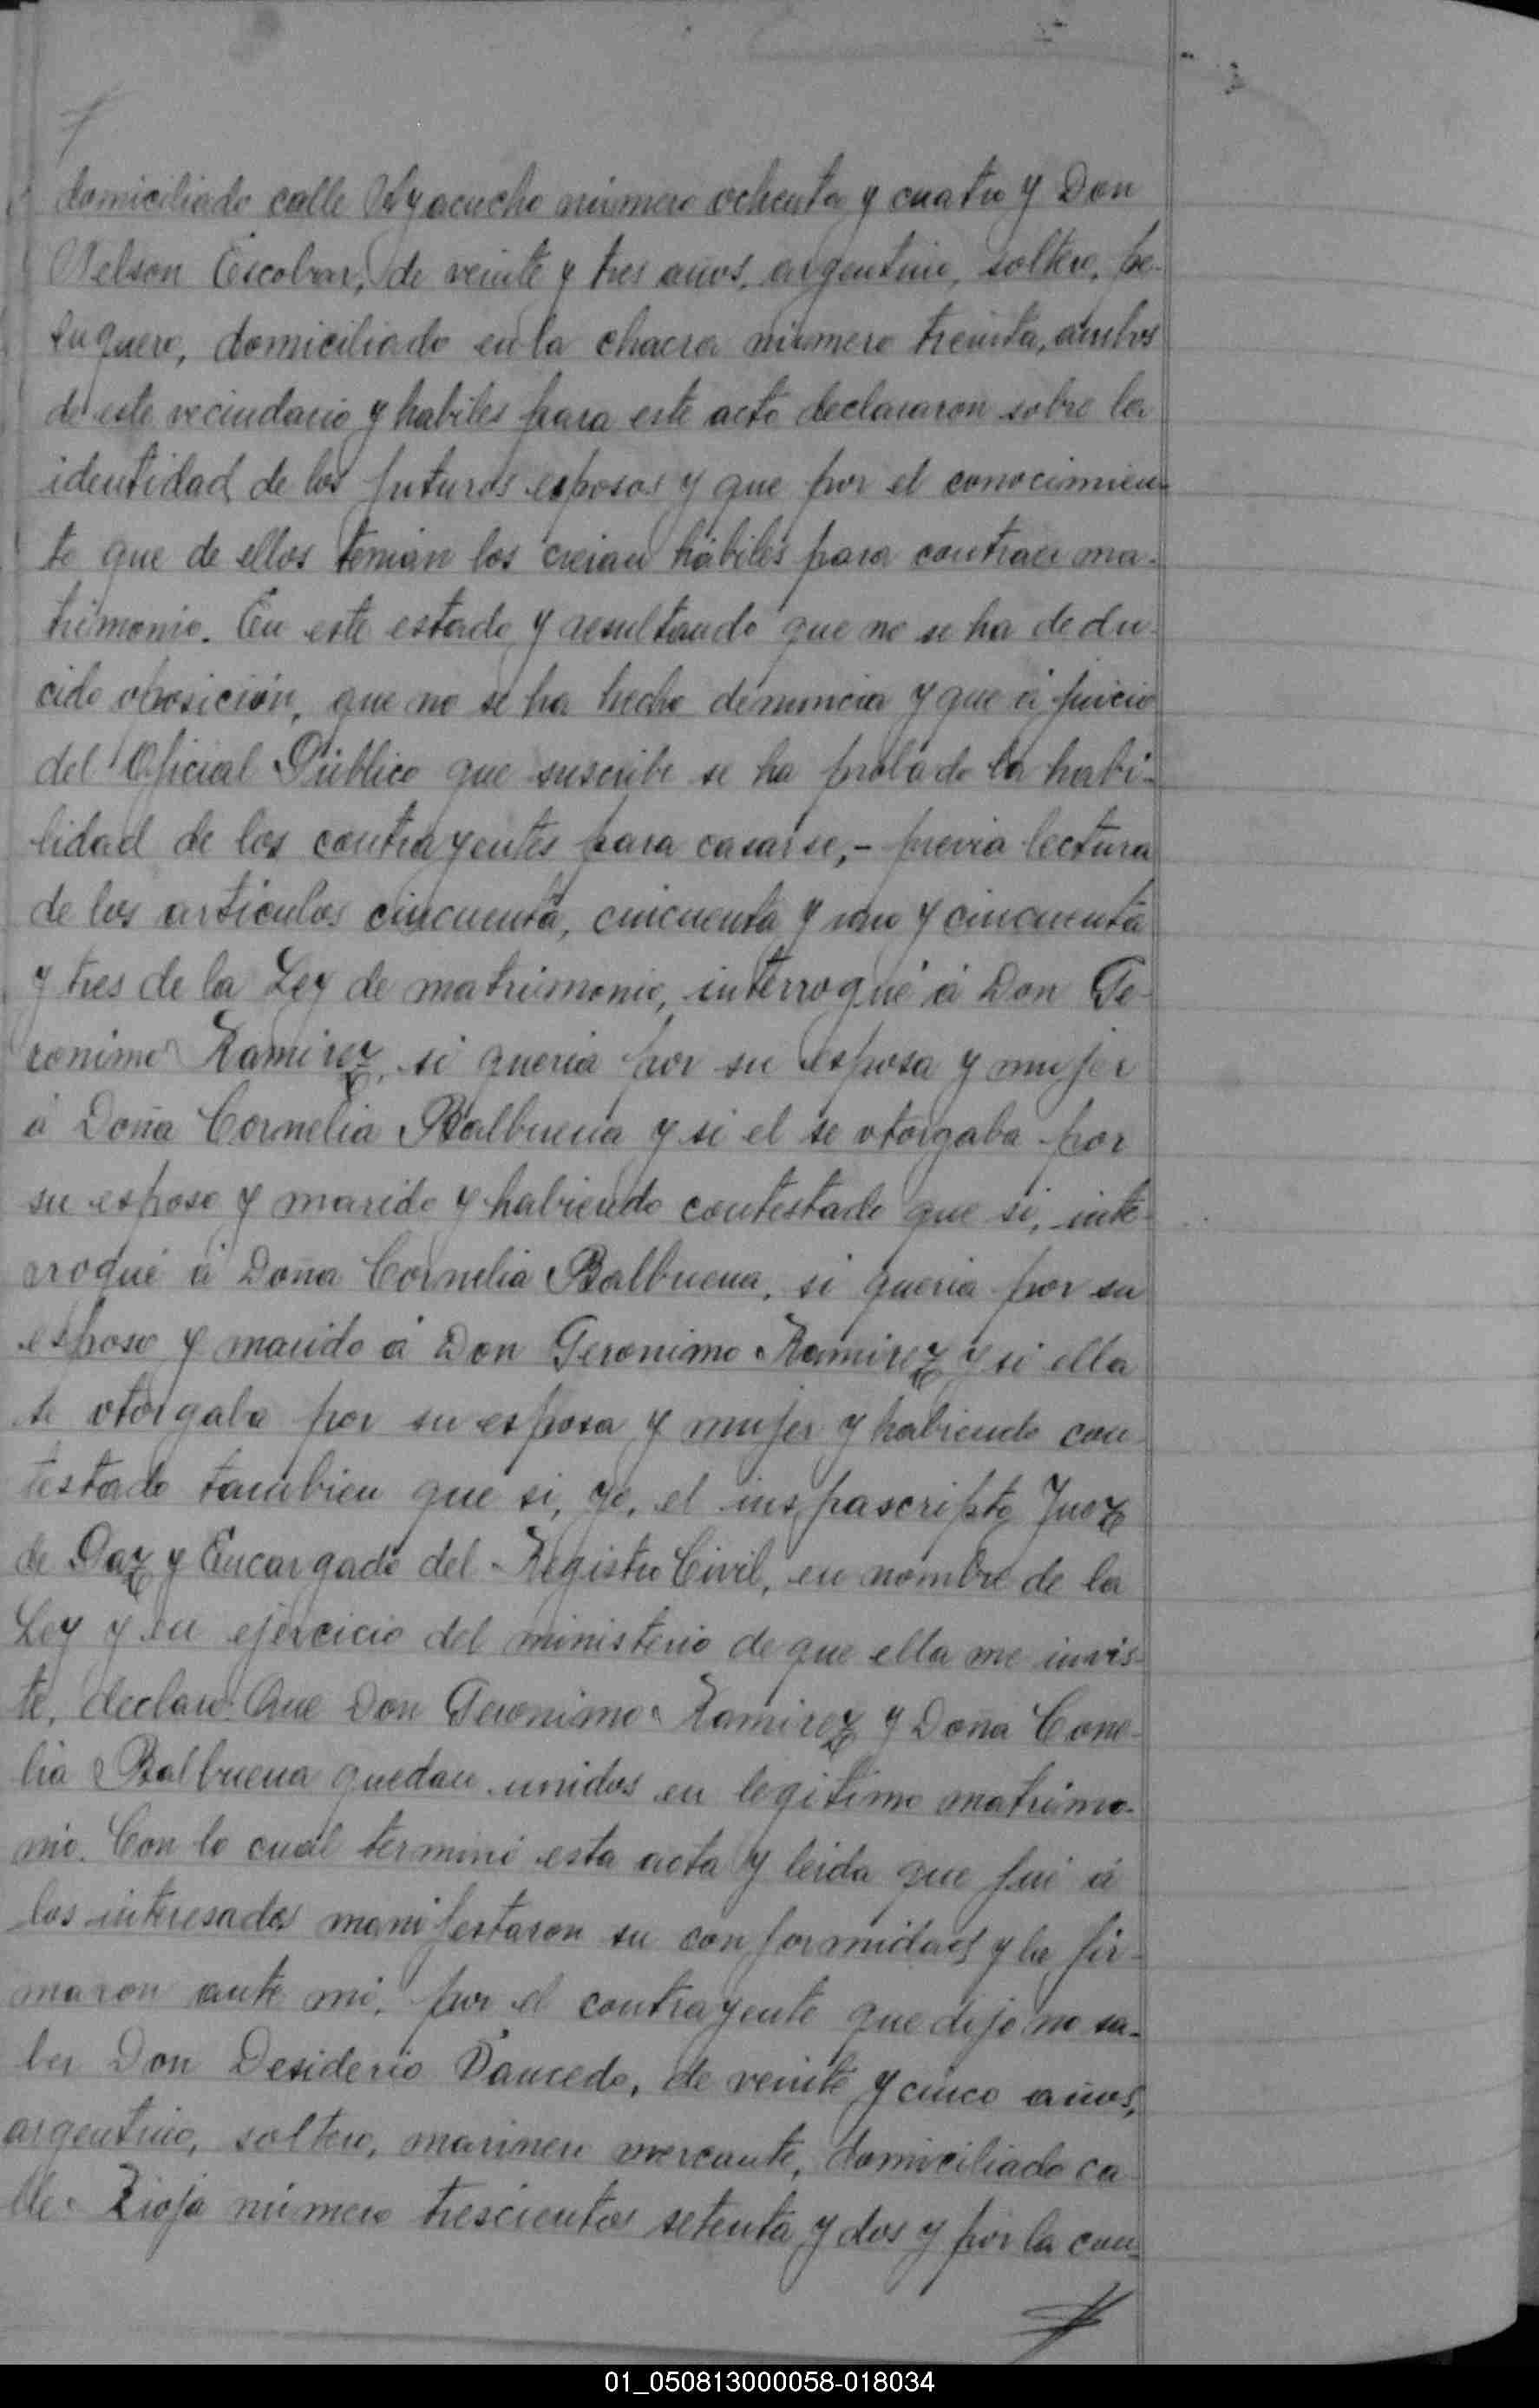 domiciliado calle Ayacucho número ochenta y cuatro y Don
Nelson Escobar, de veinte y tres años, argentino, soltero, pe-
luquero, domiciliado en la chacra número treinta, ambos
de este vecindario y habiles para este acto declararon sobre la
identidad de los futuros esposos y que por el conocimien-
to que de ellos tenian los creian hábiles para contraer ma-
trimonio. En este estado y resultando que no se ha dedu-
cido oposición, que no se ha hecho denuncia y que á juicio
del Oficial Público que suscribe se ha probado la habi-
lidad de los contrayentes para casarse,- previa lectura
de los artículos cincuenta, cincuenta y uno y cincuenta
y tres de la Ley de matrimonio, interrogué á Don Ge-
ronimo Ramirez, si queria por su esposa y mujer
á Doña Cornelia Balbuena y si el se otorgaba por
su esposo y marido y habiendo contestado que si, inte-
rrogué á Doña Cornelia Balbuena, si queria por su
esposo y marido á Don Geronimo Ramirez y si ella
se otorgaba por su esposa y mujer y habiendo con-
testado tambien que si, yo, el Juez
de Paz y Encargado del Registro Civil, en nombre de la
Ley y en ejercicio del ministerio de que ella me invis-
te, declaro: Que Don Geronimo Ramirez y Doña Corne-
lia Balbuena quedan unidos en legitimo matrimo-
nio. Con lo cual terminó esta acta y leida que fué á
los interesados manifestaron su conformidad y la fir-
maron ante mi, por el contrayente que dijo no sa-
ber Don Desiderio Saucedo, de veinte y cinco años,
argentino, soltero, marinero mercante, domiciliado ca-
lle Rioja número trescientos setenta y dos y por la con-
01_050813000058-018034